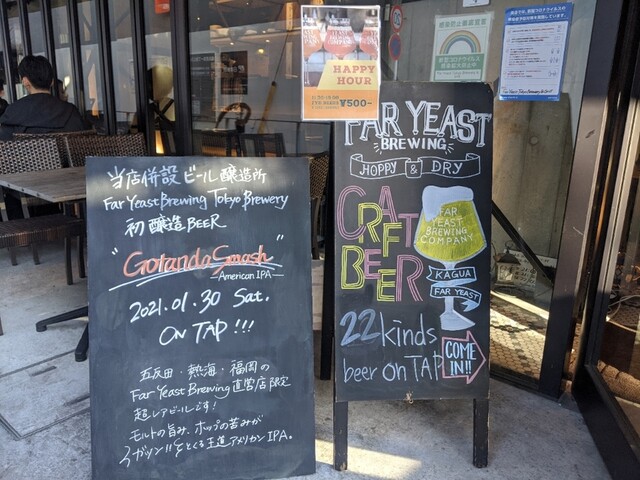 当店併設ビール醸造所
Far Yeast Brewing Tokyo Brewery
初醸造BEER
"Gotanda Smash"
American IPA
2021.01.30 Sat.
ON TAP!!!
五反田・熱海・福岡の
Far Yeast Brewing直営店限定
超レアビールです!
モルトの旨み、ホップの苦みが
ガツン!!とくる王道アメリカンIPA。
HAPPY
HOUR
¥500-
FAR YEAST
BREWING
HOPPY & DRY
CRAFT
BEER
FAR
YEAST
BREWING
COMPANY
KAGUA
FAR YEAST
22 kinds
beer on TAP
COME
IN!!